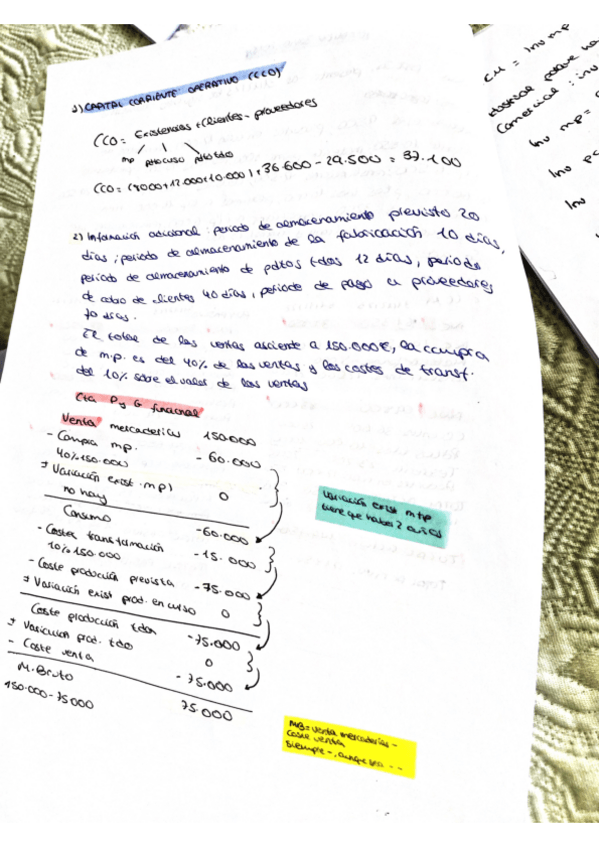 1) CAPITAL CORRIENTE OPERATIVO (CCO)
CCO = Existencias + Clientes - proveedores
mp pdto curso pdto tdo
CCO = (8000+12.000+10.000) + 36.600 - 29.500 = 37.100
2) Información adicional: periodo de almacenamiento previsto 20
días; periodo de almacenamiento de la fabricación 10 días,
periodo de almacenamiento de pdtos tdos 12 días, periodo
de cobro de clientes 40 días, periodo de pago a proveedores
70 días.
El total de las ventas asciende a 150.000€, la compra
de m.p. es del 40% de las ventas y los costes de transf.
del 10% sobre el valor de las ventas
Cta P y G funcional
Venta mercaderías 150.000
- Compra mp. - 60.000
40% 150.000
± Variación exist. mp) 0
no hay
Consumo -60.000
- Costes transformación -15.000
10% 150.000
- Coste producción prevista -75.000
± Variación exist prod. en curso 0
Coste producción tdon -75.000
± Variación prod. tdo 0
- Coste venta -75.000
M. Bruto
150.000-75000 75.000
Variación exist mp
tiene que haber 2 años
MB = Venta mercaderías -
Coste ventas
siempre -, aunque sea - -
CM = Inv mp
Comercial: inv
Inv mp =
Inv pc
Inv